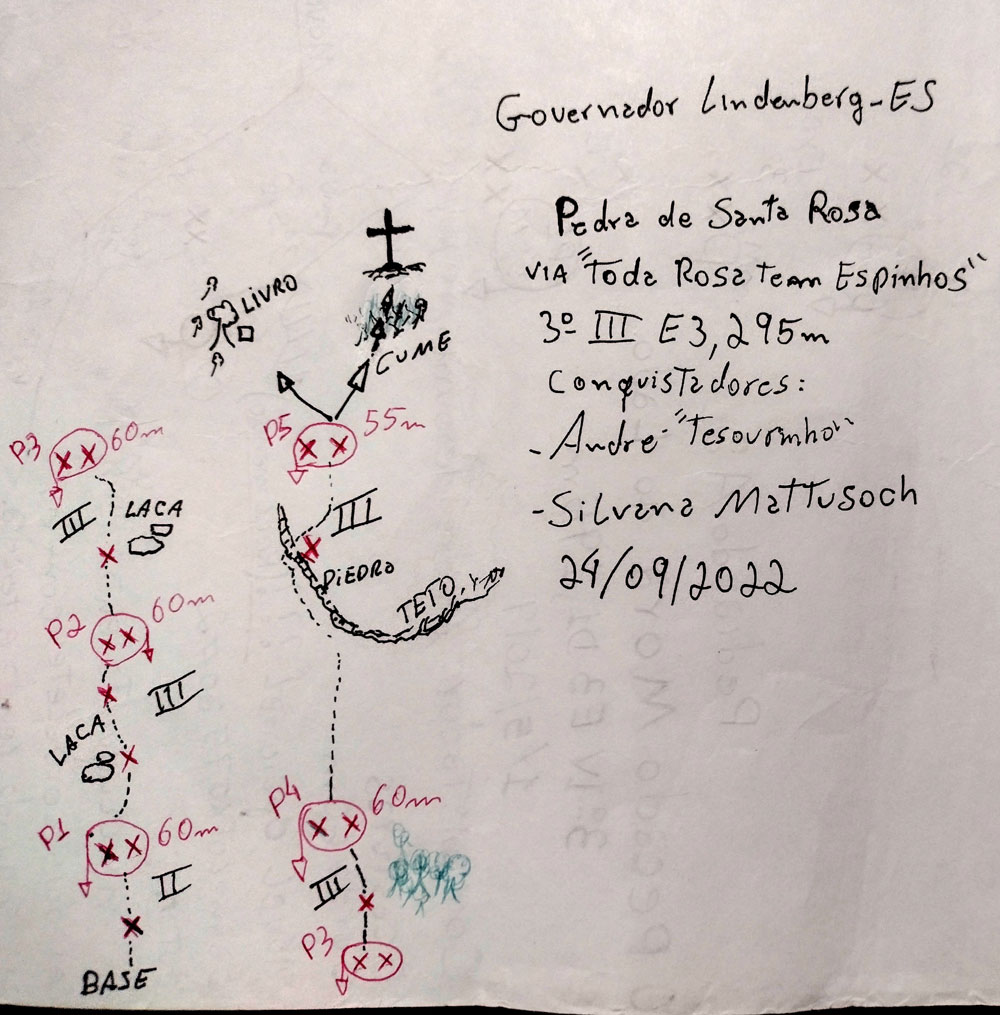 Governador Lindenberg-ES
Pedra de Santa Rosa
VIA "Toda Rosa Team Espinhos"
3º III E3, 295m
Conquistadores:
- Andre "Tesourinha"
- Silvana Mattusoch
24/09/2022
LIVRO
CUME
P5 55m
III
DIEDRO
TETO
P4 60m
III
P3
P3 60m
III
LACA
P2 60m
III
LACA
P1 60m
II
BASE